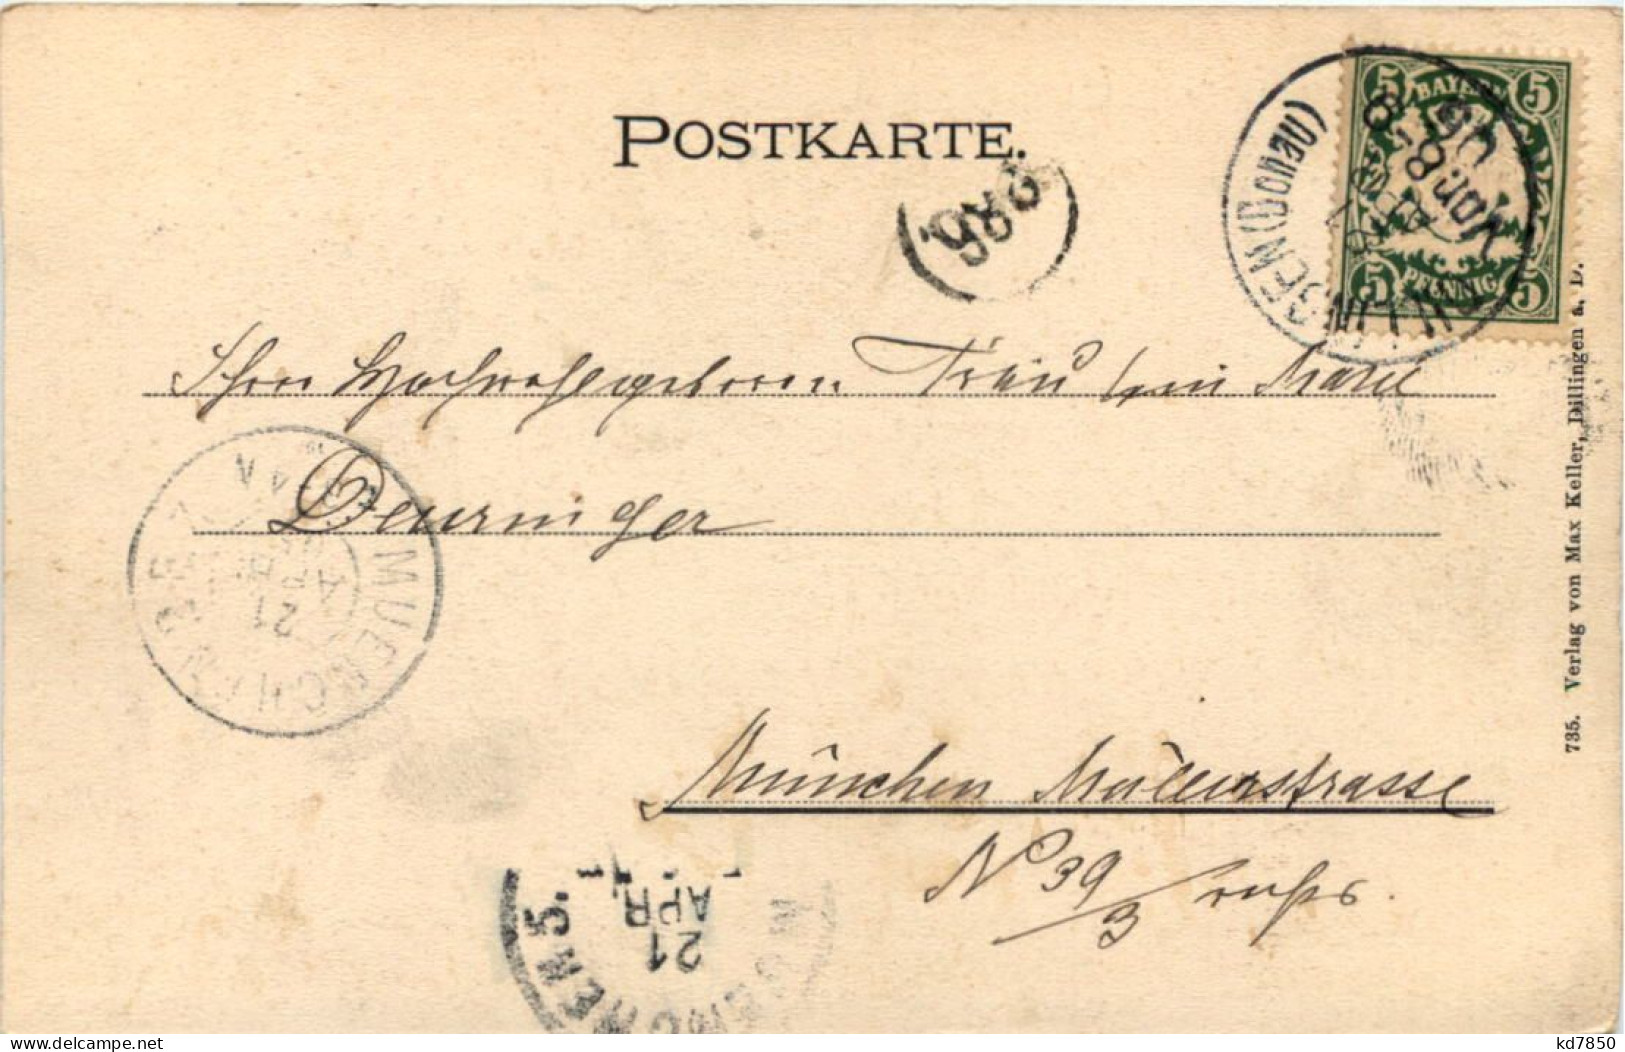 POSTKARTE.
BAYERN
5 5
5 5
PFENNIG
(Donau)
Vor. 8
Ihrer Hochwohlgeboren Fräulein
Deuringer
MUENCHEN
21
APR
München Müllerstrasse
No 39/3 rechts.
21
APR.
735. Verlag von Max Keller, Dillingen a. D.
kd7850